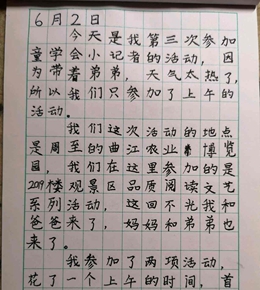 6月2日
今天是我第三次参加
童学会小记者的活动，因
为带着弟弟，天气太热了，
所以我们只参加了上午的
活动。
我们这次活动的地点
是周至的曲江农业博览
园，我们在这里参加的是
2019楼观景区品质阅读文艺
系列活动，这回不光我和
爸爸来了，妈妈和弟弟也
来了。
我参加了两项活动，
花了一个上午的时间，首